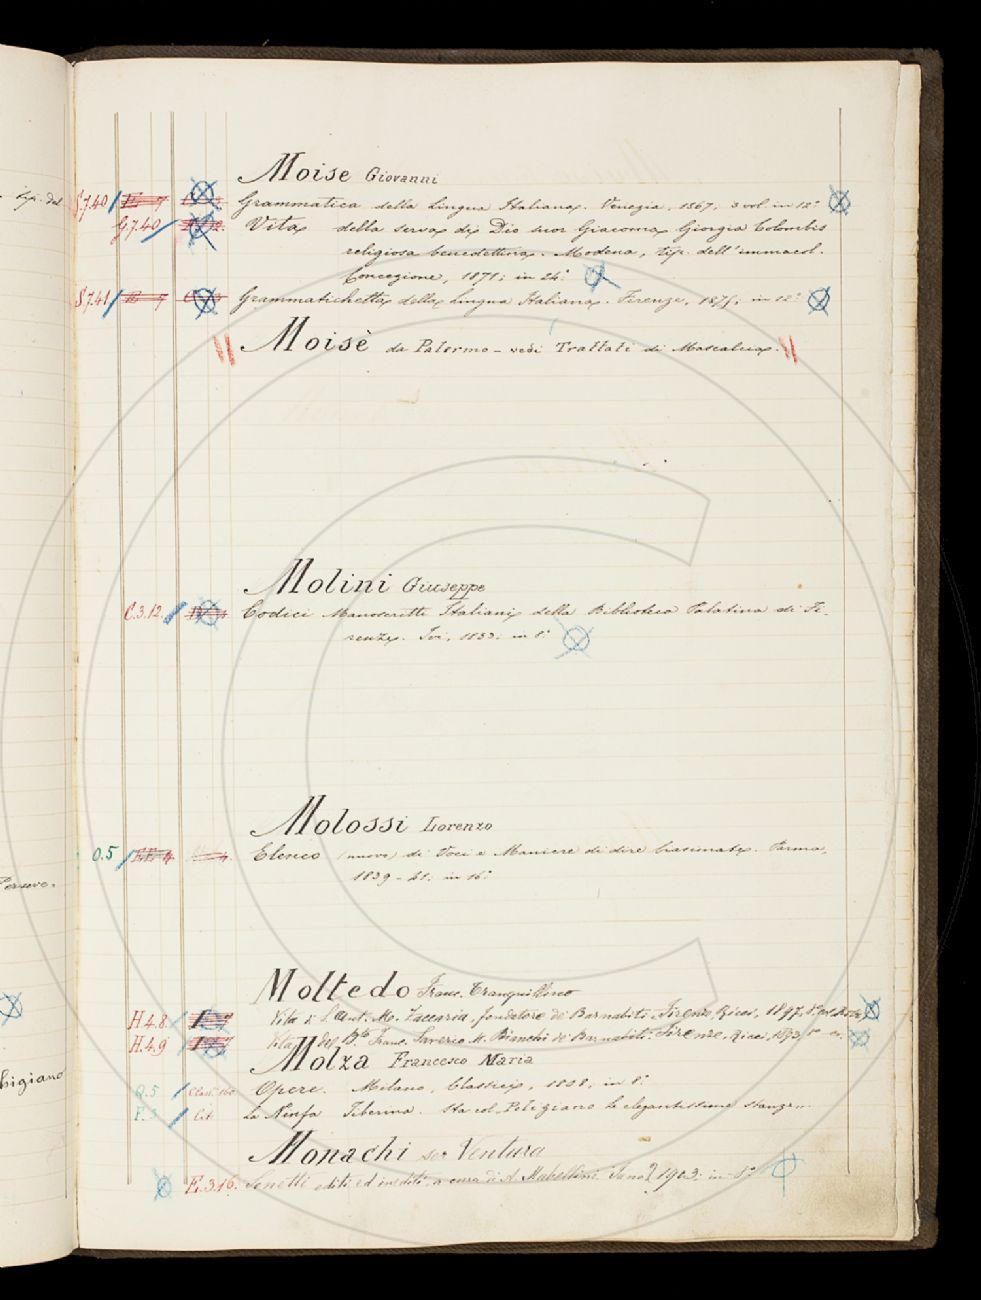 Moise Giovanni
S.7.40 Grammatica della lingua Italiana. Venezia, 1867, 3 vol. in 12°
G.7.40 Vita della serva di Dio suor Giacoma Giorgia Colombis
religiosa benedettina. Modena, tip. dell'immacol.
Concezione, 1871; in 24°
S.7.41 Grammatichetta della lingua Italiana. Firenze, in 12°
Moisè da Palermo - vedi Trattati di Mascalcia.
Molini Giuseppe
C.3.12. Codici Manoscritti Italiani della Biblioteca Palatina di Fi-
renze. Ivi, 1833. in 8°
Molossi Lorenzo
O.5 Elenco (nuovo) di Voci e Maniere di dire biasimate. Parma,
1839-41. in 16°
Moltedo Franc. Tranquillino
H.4.8. Vita di S. Ant. M. Zaccaria, fondatore de' Barnabiti. Firenze, Ricci, 1897,
H.4.9 Vita del Franc. Saverio M. Bianchi de' Barnabiti. Firenze, Ricci, 1893,
Molza Francesco Maria
Q.5 Opere. Milano, Classici, 1808, in 8°
La Ninfa Tiberina. Sta col Poliziano le elegantissime stanze...
Cit.
Monachi ser Ventura
E.3.16. Sonetti editi ed inediti a cura di A. Mabellini. 1903. in 8°
tip. del
Perseve-
higiano